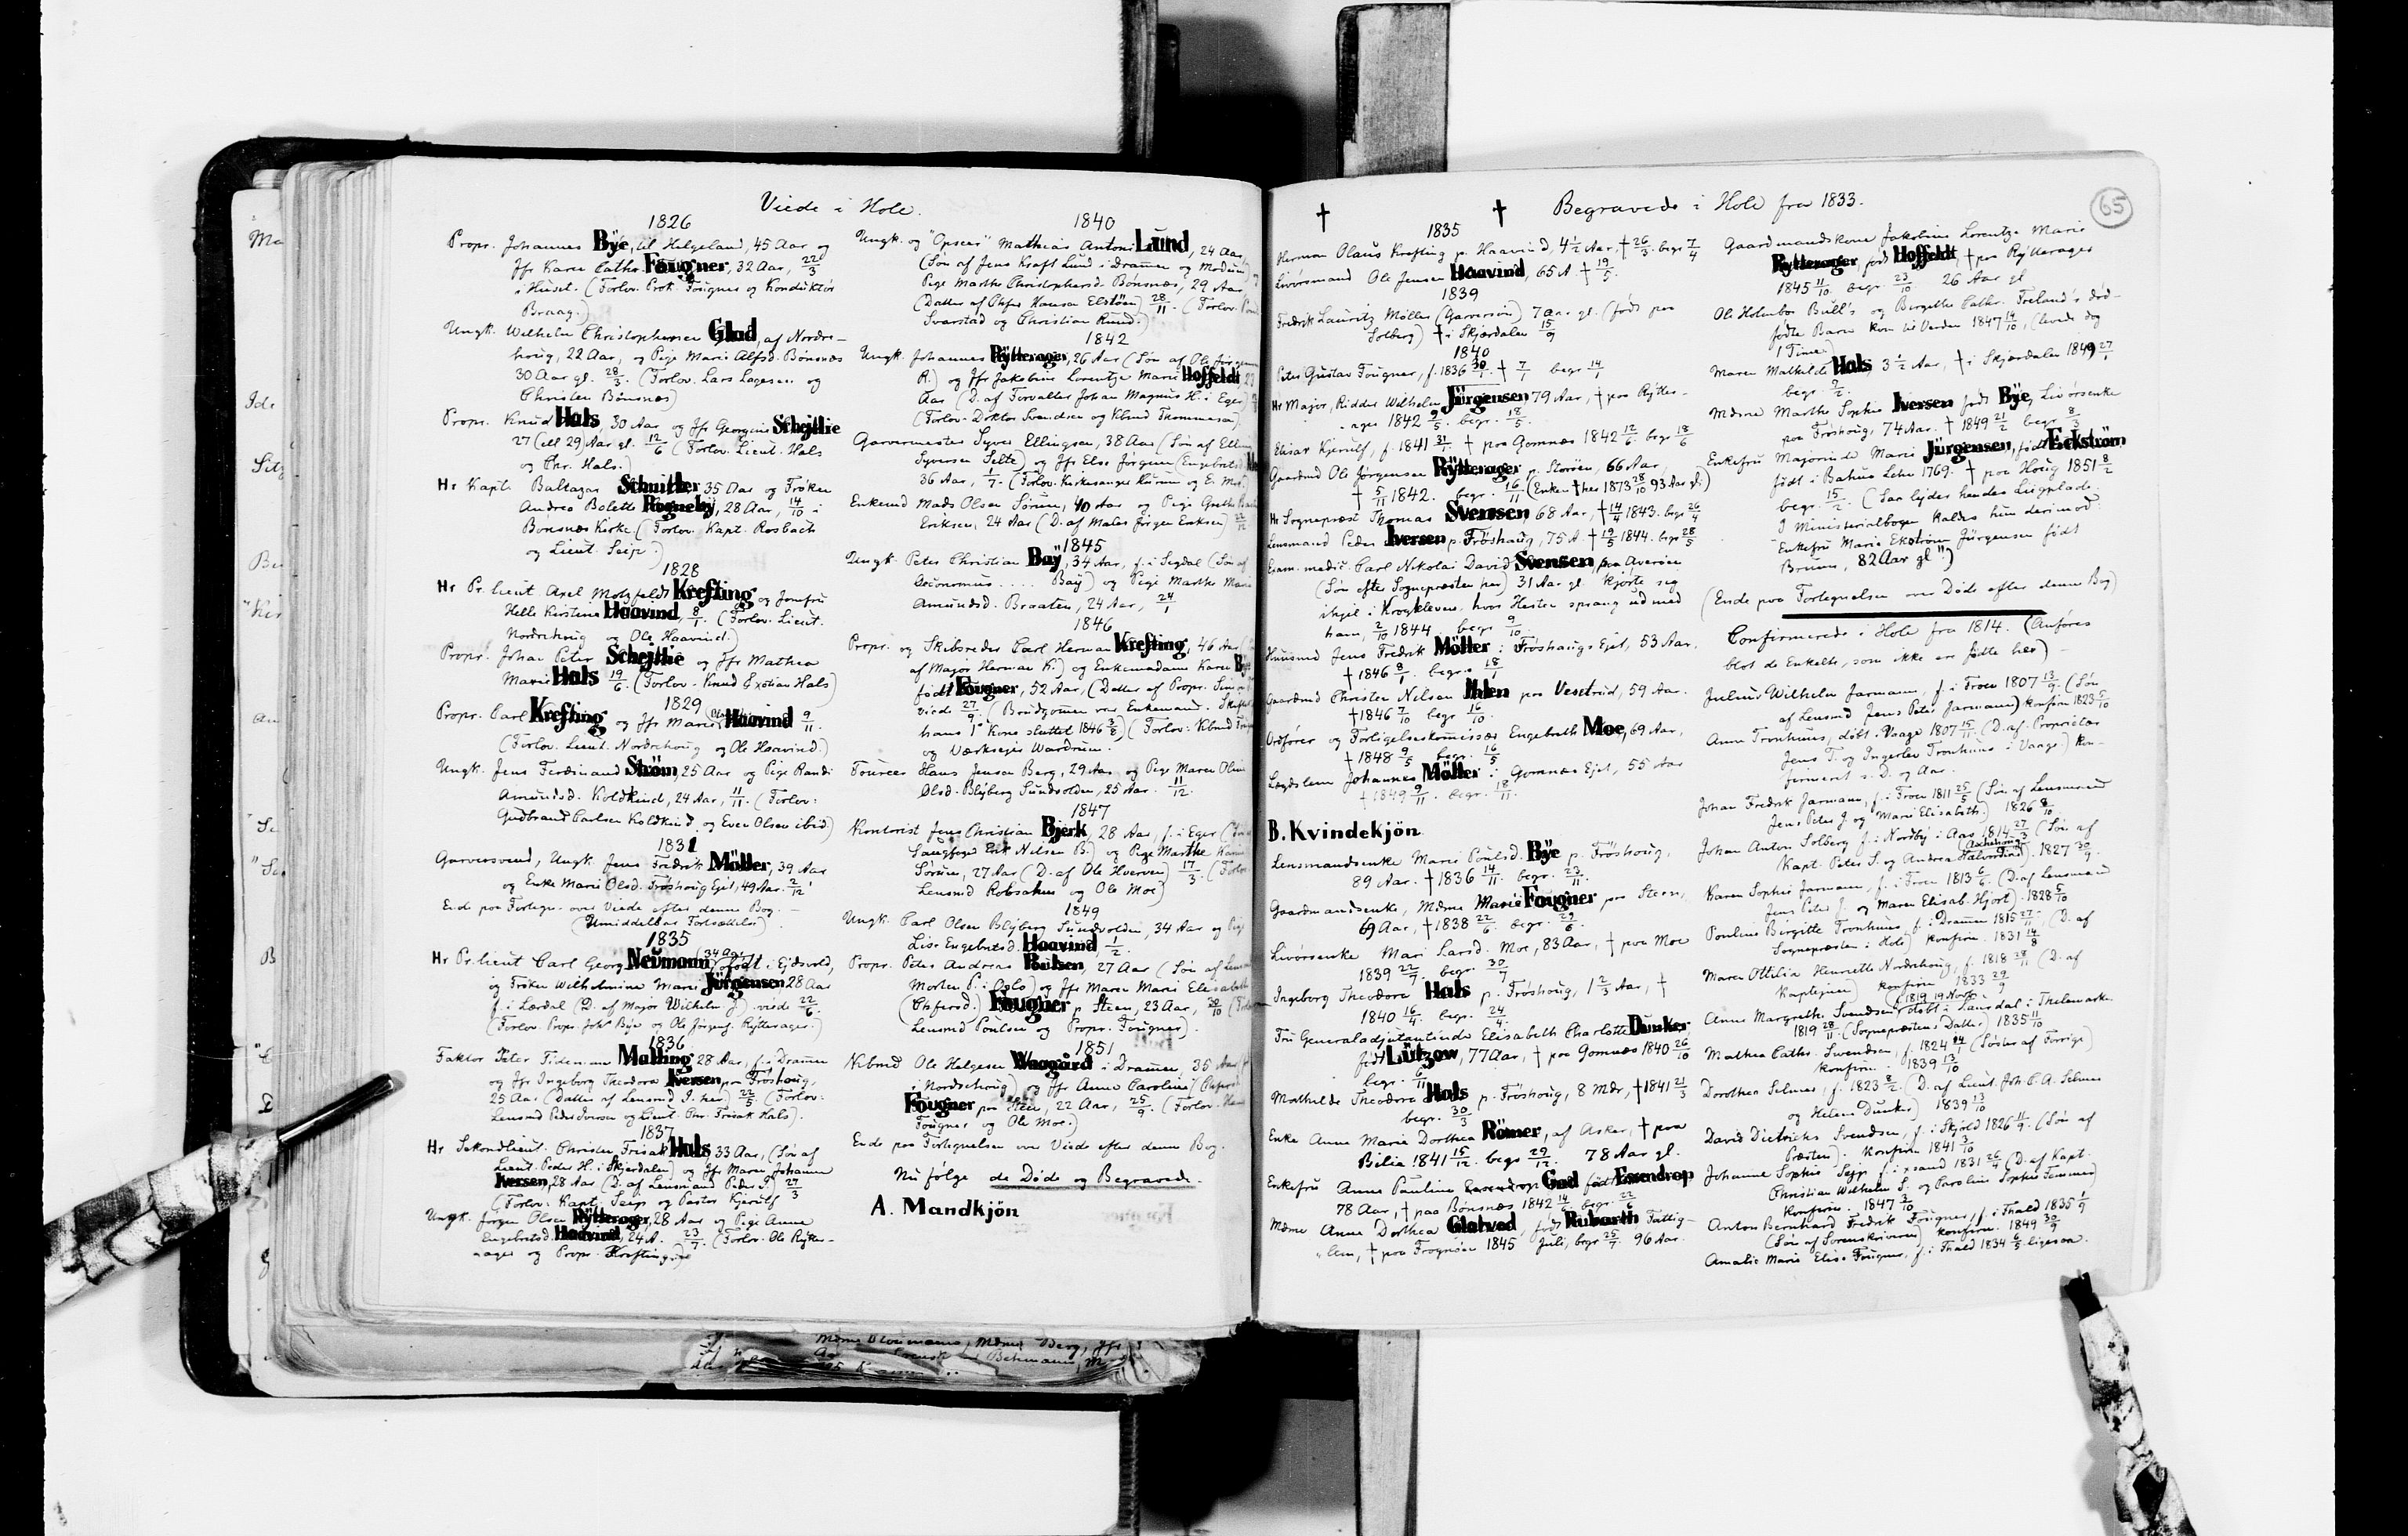 Viede i Hole.
1826
Propr. Johannes Bÿe, til Helgeland, 45 Aar og
Jfr Karen Cathr. Fougner, 32 Aar, 22/3
i Huset. (Forlov. Prok. Fougner og Konduktör
Braag.)
Ungk. Wilhelm Christophersen Glad, af Nordre-
houg, 22 Aar, og Pige Marie Alfsd. Bönsnæs
30 Aar gl. 28/3. (Forlov. Lars Lagesen og
Christen Bönsnæs)
Propr. Knud Hals, 30 Aar og Jfr Georgine Schejtlie
27 (ell 29) Aar gl. 12/6 (Forlov. Lieut. Hals
og Chr. Hals.)
Hr Kapt. Baltazar Schnitler 35 Aar og Fröken
Andrea Bolette Rogneby, 28 Aar, 14/10 i
Bönsnæs Kirke. (Forlov. Kapt. Rosbach
og Lieut. Seip.)
1828
Hr Pr. lieut. Axel Motzfeldt Krefting og Jomfru
Helle Kirstine Haavind, 8/1. (Forlov. Lieut.
Nordrehoug og Ole Haavind.)
Propr. Johan Peter Schejtlie og Jfr Mathea
Marie Hals 19/6. (Forlov. Knud & Xstian Hals)
1829
Propr. Carl Krefting og Jfr Maren Haavind 9/11.
(Forlov. Lieut. Nordrehoug og Ole Haavind.)
Ungk. Jens Ferdinand Ström, 25 Aar og Pige Randi
Amundsd. Koldkind, 24 Aar, 11/11. (Forlov:
Gudbrand Carlsen Koldkind og Even Olsen ibid)
1831
Garversvend, Ungk. Jens Fredrik Möller, 39 Aar
og Enke Marie Olsd. Fröshoug Ejet, 49 Aar. 2/12
Ende paa Fortegn. over Viede efter denne Bog. -
(Umiddelbar Fortsættelse)
1835
Hr Pr. lieut Carl Georg Neümann 34 Aar, født i Ejdsvold,
og Fröken Wilhelmine Marie Jürgensen 28 Aar
f. i Lærdal (D. af Major Wilhelm J.) viede 22/6.
(Forlov. Propr. Johs Bÿe og Ole Jörgens. Rÿtterager.)
1836
Faktor Peter Tidemann Malling 28 Aar, f. i Dramen
og Jfr Ingeborg Theodora Iversen paa Fröshoug,
25 Aar (Datter af Lensmd I. her) 22/5. (Forlov:
Lensmd Peder Iversen og Lieut. Chr. Frisak Hals).
1837
Hr Sekondlieut. Christen Frisak Hals 33 Aar, (Sön af
Lieut. Peder H. i Skjerdalen) og Jfr Maren Johanne
Iversen, 28 Aar (D. af Lensmand Peder I.) 27/3
(Forlov: Kapt. Seip og Pastor Kjerulf
Ungk. Jörgen Olsen Rÿtterager, 28 Aar og Pige Anne
Engebretsd. Haavind, 24 A. 23/7. (Forlov. Ole Rÿtte-
rager og Propr. Krefting.)
1840
Ungk. og "Opseer" Mathias Antoni Lund, 24 Aar
(Sön af Jens Kraft Lund i Dramen og Modum
Pige Marthe Christophersd. Bönsnæs, 29 Aar
(Datter af Chfer Hansen Elstöen) 28/11. (Forlov.
Svarstad og Christian Rund.)
1842
Ungk. Johannes Rÿtterager, 26 Aar (Sön af Ole Jörgensen
R.) og Jfr Jakobine Lorentze Marie Hoffeldt 22
Aar (D. af Forvalter Johan Magnus H. i Eger)
(Forlov. Doktor Svendsen og Kbmd Thommesen)
Garvermester Syver Ellingsen, 38 Aar (Sön af Elling
Syversen Selte) og Jfr Else Jörgine (Engebretsd.
36 Aar, 1/7. (Forlov. Kirkesanger Kurum og E. Moe)
Enkemd Mads Olsen Sörum, 40 Aar og Pige Grethe
Eriksen, 24 Aar (D. af Maler Jörgen Eriksen) 22/12
1845
Ungk. Peter Christian Baÿ, 34 Aar, f. i Sigdal (Sön af
Oeconomus . . . . Baÿ) og Pige Marthe Marie
Amundsd. Braaten, 24 Aar, 24/1
1846
Propr. og Skibsreder Carl Herman Krefting, 46 Aar
af Major Herman K.) og Enkemadame Karen Bÿe
født Fougner, 52 Aar, (Datter af Propr.
viede 27/9. (Brudgommen var Enkemand. Skiftet
hans 1ste Kone sluttet 1846 3/8) (Forlov: Kbmd
og Værksejer Wardrum.
Fourer Hans Jensen Berg, 29 Aar og Pige Maren Oline
Olsd. Blÿberg Sundvolden, 25 Aar. 11/12.
1847
Kontorist Jens Christian Bjerk, 28 Aar, f. i Eger
Saugfoged Erik Nilsen B.) og Pige Marthe Karine
Sörum, 27 Aar (D. af Ole Hverven) 17/3. (Forlov
Lensmd Robsahm og Ole Moe)
1849
Ungk. Carl Olsen Blÿberg Sundvolden, 34 Aar og Pige
Lise Engebretsd. Haavind, 1/2.
Propr. Peter Andreas Poulsen, 27 Aar (Sön af Lensmd
Morten P. i Oslo) og Jfr Maren Marie Elisabeth
(Chfersd.) Fougner p. Steen, 23 Aar, 20/10
Lensmd Poulsen og Propr. Fougner).
1851
Kbmd Ole Helgesen Waagård i Dramen, 35 Aar
i Nordrehoug) og Jfr Anne Caroline
Fougner paa Steen, 22 Aar, 25/9. (Forlov. Hans
Fougner og Ole Moe.)
Ende paa Fortegnelsen over Viede efter denne Bog.
Nu følge de Døde og Begravede.
A. Mandkjön
65
† † Begravede i Hole fra 1833.
1835
Herman Olaus Krefting p. Haavind, 4 1/2 Aar, † 26/3. begr 7/4
Livörsmand Ole Jensen Haavind, 65 A. † 19/5.
1839
Fredrik Lauritz Møller (Garversön) 7 Aar gl. (født paa
Solberg) † i Skjærdalen 15/9
1840
Peter Gustav Fougner, f. 1836 30/ † 7/1 begr 14/1
Hr Major, Ridder Wilhelm Jürgensen 79 Aar, † paa Rÿtte-
rager 1842 9/5. begr. 18/5.
Elisar Kjerulf, f. 1841 31/ † paa Gomnæs 1842 12/6 begr 18/6
Gaardmd Ole Jørgensen Rÿtterager p. Storöen, 66 Aar,
† 5/11 1842. begr. 16/11 (Enken † her 1873 28/10 93 Aar gl.)
Hr Sognepræst Thomas Svensen, 68 Aar, † 14/4 1843. begr 26/4
Lensmand Peder Iversen p. Fröshaug, 75 A. † 19/5 1844. begr 28/5
Exam. medic. Carl Nikolai David Svensen, paa Averöen
(Sön efter Sognepræsten her) 31 Aar gl. kjørte sig
ihjel i Krogkleven, hvor Hesten sprang ud med
ham, 2/10 1844. begr. 9/10.
Huusmd Jens Fredrik Möller i Fröshaugs Ejet, 53 Aar,
† 1846 8/1. begr. 18/1
Gaardmd Christen Nilsen Ihlen paa Vesetrud, 59 Aar.
† 1846 7/10 begr 16/10.
Ordfører og Forligelseskommissær Engebreth Moe, 69 Aar,
† 1848 9/5 begr. 16/5
Lægdslem Johannes Möller i Gomnæs Ejet, 55 Aar
† 1849 9/11. begr. 18/11.
B. Kvindekjön
Lensmandsenke Marie Poulsd. Bÿe p. Fröshoug,
89 Aar. † 1836 14/11. begr. 23/11.
Gaardmandsenke, Mdme Marie Fougner paa Steen,
69 Aar, † 1838 22/6. begr. 29/6.
Livörsenke Mari Larsd. Moe, 83 Aar, † paa Moe
1839 22/7. begr. 30/7
Ingeborg Theodora Hals p. Fröshoug, 1 2/3 Aar, †
1840 16/4. begr. 24/4.
Fru Generaladjutantinde Elisabeth Charlotte Dunker,
født Lützow, 77 Aar, † paa Gomnæs 1840 26/10
begr. 6/11
Mathilde Theodora Hals p. Fröshoug, 8 Mdr, † 1841 21/3
begr. 30/3
Enke Anne Marie Dorthea Römer, af Asker, † paa
Bilia 1841 15/12. begr 29/12. 78 Aar gl.
Enkefru Anne Pauline Gad født Essendrop
78 Aar, † paa Bönsnæs 1842 14/6 begr. 22/6
Mdme Anne Dorthea Glatved, født Rubarth Fattig-
lem, † paa Frognöen 1845 Juli, begr 25/7. 96 Aar.
Gaardmandskone Jakobine Lorentze Marie
Rÿtterager, født Hoffeldt, † paa Rÿtterager
1845 11/10. begr. 23/10 26 Aar gl
Ole Holmboe Bull's og Birgitte Cathr. Freland's død-
fødte Barn kom til Verden 1847 14/10, (levede dog
1 Time.)
Maren Mathilde Hals, 3 1/2 Aar, † i Skjærdalen 1849 27/1
begr 7/2.
Mdme Marthe Sophie Iversen født Bÿe, Livörsenke
paa Fröshoug, 74 Aar. † 1849 21/2 begr 8/3
Enkefru Majorinde Marie Jürgensen, født Eckström
født i Bahus Lehn 1769. † paa Houg 1851 8/2
begr. 15/2. (Saa lyder hendes Liigplade.
I Ministerialbogen kaldes hun derimod:
"Enkefru Marie Ekström Jürgensen født
Bruun, 82 Aar gl".)
(Ende paa Fortegnelsen over Døde efter denne Bog)
Confirmerede i Hole fra 1814. (Anføres
blot de Enkelte, som ikke ere fødte her) -
Julius Wilhelm Jarmann, f. i Froen 1807 13/9. (Sön
af Lensmd Jens Peter Jarmann) konfirm 1823 5/10
Anne Tronhuus, döbt i Vaage 1807 15/11. (D. af Proprietær
Jens T. og Ingerlev Tronhuus i Vaage) kon-
firmeret s. D. og Aar.
Johan Fredrik Jarmann, f. i Froen 1811 25/5 (Sön af Lensmand
Jens Peter J. og Marie Elisabeth.) 1826 8/10.
Johan Anton Solberg f. i Nordby i Aas 1814 27/3 (Sön af
Kapt. Peter S. og Andrea (Aschehoug) Halvordine). 1827 30/9.
Karen Sophie Jarmann, f. i Froen 1813 6/6 (D. af Lensmand
Jens Peter J. og Maren Elisab. Hjort). 1828 5/10
Pouline Birgitte Tronhuus, f. i Dramen 1815 27/11. (D. af
Sognepræsten i Hole) konfirm. 1831 14/8
Maren Ottilia Henriette Nordrehoug, f. 1818 28/11 (D. af
Kaptejnen) konfirm 1833 29/9
Anne Margrethe Svendsen (f. 1819 19 Novbr) döbt i Laurdal i Thelemarken
1819 28/11. (Sognepræstens Datter) 1835 11/10
Mathea Cathr. Svendsen, f. 1824 24/1 (Søster af Forrige)
konfirm. 1839 13/10
Dorothea Selmer, f. 1823 8/2. (D. af Lieut. Joh. C. A. Selmer
og Helene Dunker) 1839 13/10
David Dietrichs Svendsen, f. i Skjold 1826 11/9. (Sön af
Præsten). konfirm 1841 3/10
Johanne Sophie Sejp f. i xsand 1831 26/4 (D. af Kapt.
Christian Wilhelm S. og Caroline Sophie Tommer)
konfirm. 1847 3/10
Anton Bernhard Fredrik Fougner, f. i Thald 1835 1/9
(Sön af Sorenskriveren) konfirm. 1849 30/9
Amalie Marie Elise Fougner, f. i Thald 1834 6/5. ligesaa.